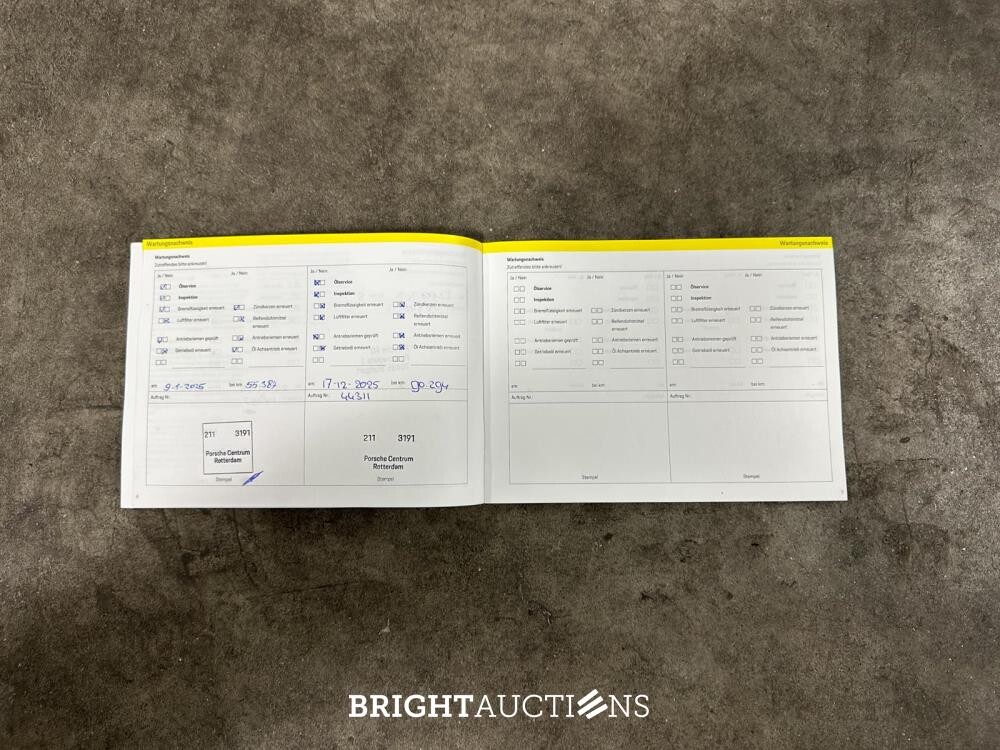 Wartungsnachweis
Wartungsnachweis
Zutreffendes bitte ankreuzen!
Ja / Nein
Ja / Nein
Ölservice
Inspektion
Bremsflüssigkeit erneuert
Zündkerzen erneuert
Luftfilter erneuert
Reifendichtmittel
erneuert
Antriebsriemen geprüft
Antriebsriemen erneuert
Getriebeöl erneuert
Öl Achsantrieb erneuert
am: 9-1-2025 bei km: 55.387
Auftrag Nr.:
211 3191
Porsche Centrum
Rotterdam
Stempel
6
Ja / Nein
Ja / Nein
Ölservice
Inspektion
Bremsflüssigkeit erneuert
Zündkerzen erneuert
Luftfilter erneuert
Reifendichtmittel
erneuert
Antriebsriemen geprüft
Antriebsriemen erneuert
Getriebeöl erneuert
Öl Achsantrieb erneuert
am: 17-12-2025 bei km: 90.294
Auftrag Nr.: 44311
211 3191
Porsche Centrum
Rotterdam
Stempel
Wartungsnachweis
Wartungsnachweis
Zutreffendes bitte ankreuzen!
Ja / Nein
Ja / Nein
Ölservice
Inspektion
Bremsflüssigkeit erneuert
Zündkerzen erneuert
Luftfilter erneuert
Reifendichtmittel
erneuert
Antriebsriemen geprüft
Antriebsriemen erneuert
Getriebeöl erneuert
Öl Achsantrieb erneuert
am: bei km:
Auftrag Nr.:
Stempel
Ja / Nein
Ja / Nein
Ölservice
Inspektion
Bremsflüssigkeit erneuert
Zündkerzen erneuert
Luftfilter erneuert
Reifendichtmittel
erneuert
Antriebsriemen geprüft
Antriebsriemen erneuert
Getriebeöl erneuert
Öl Achsantrieb erneuert
am: bei km:
Auftrag Nr.:
Stempel
7
BRIGHTAUCTIONS